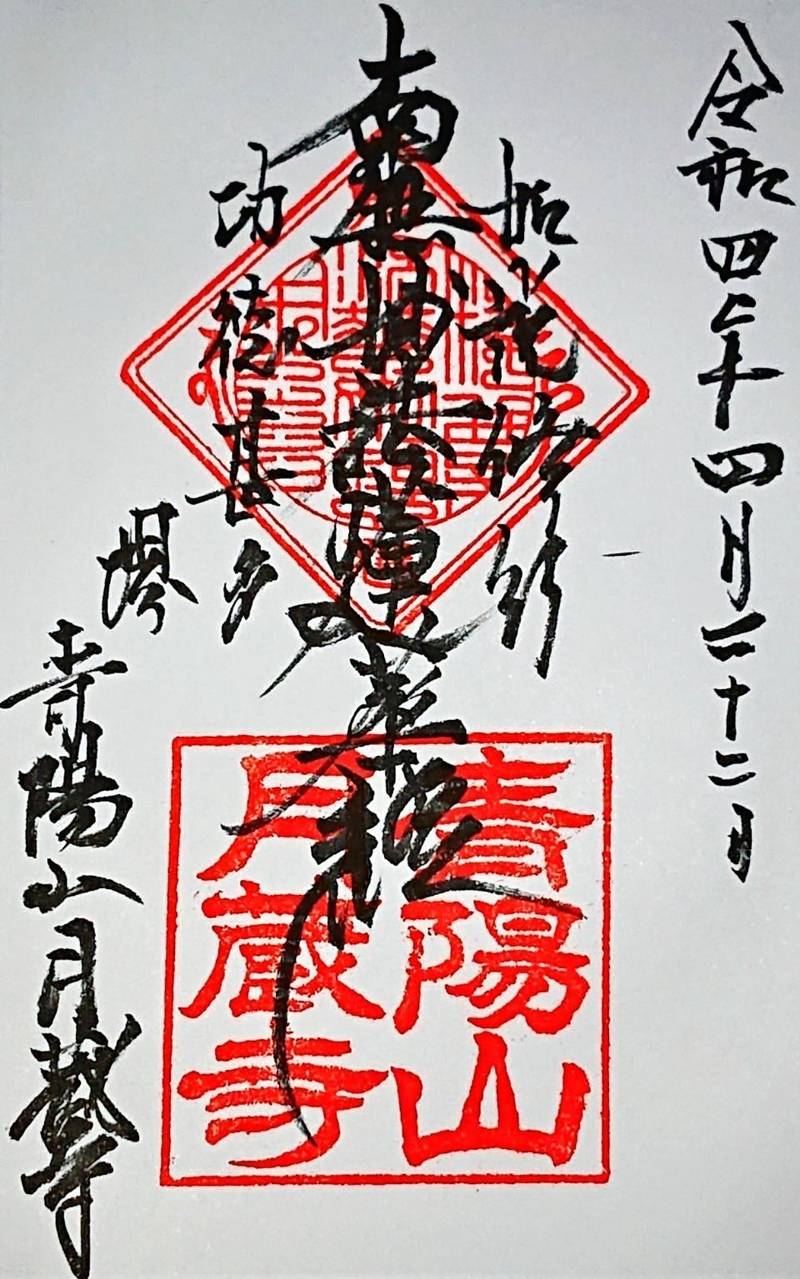 令和四年四月二十二日
如説修行
南無妙法蓮華経
功徳甚多
堺
青陽山月蔵寺
青陽山
月蔵寺